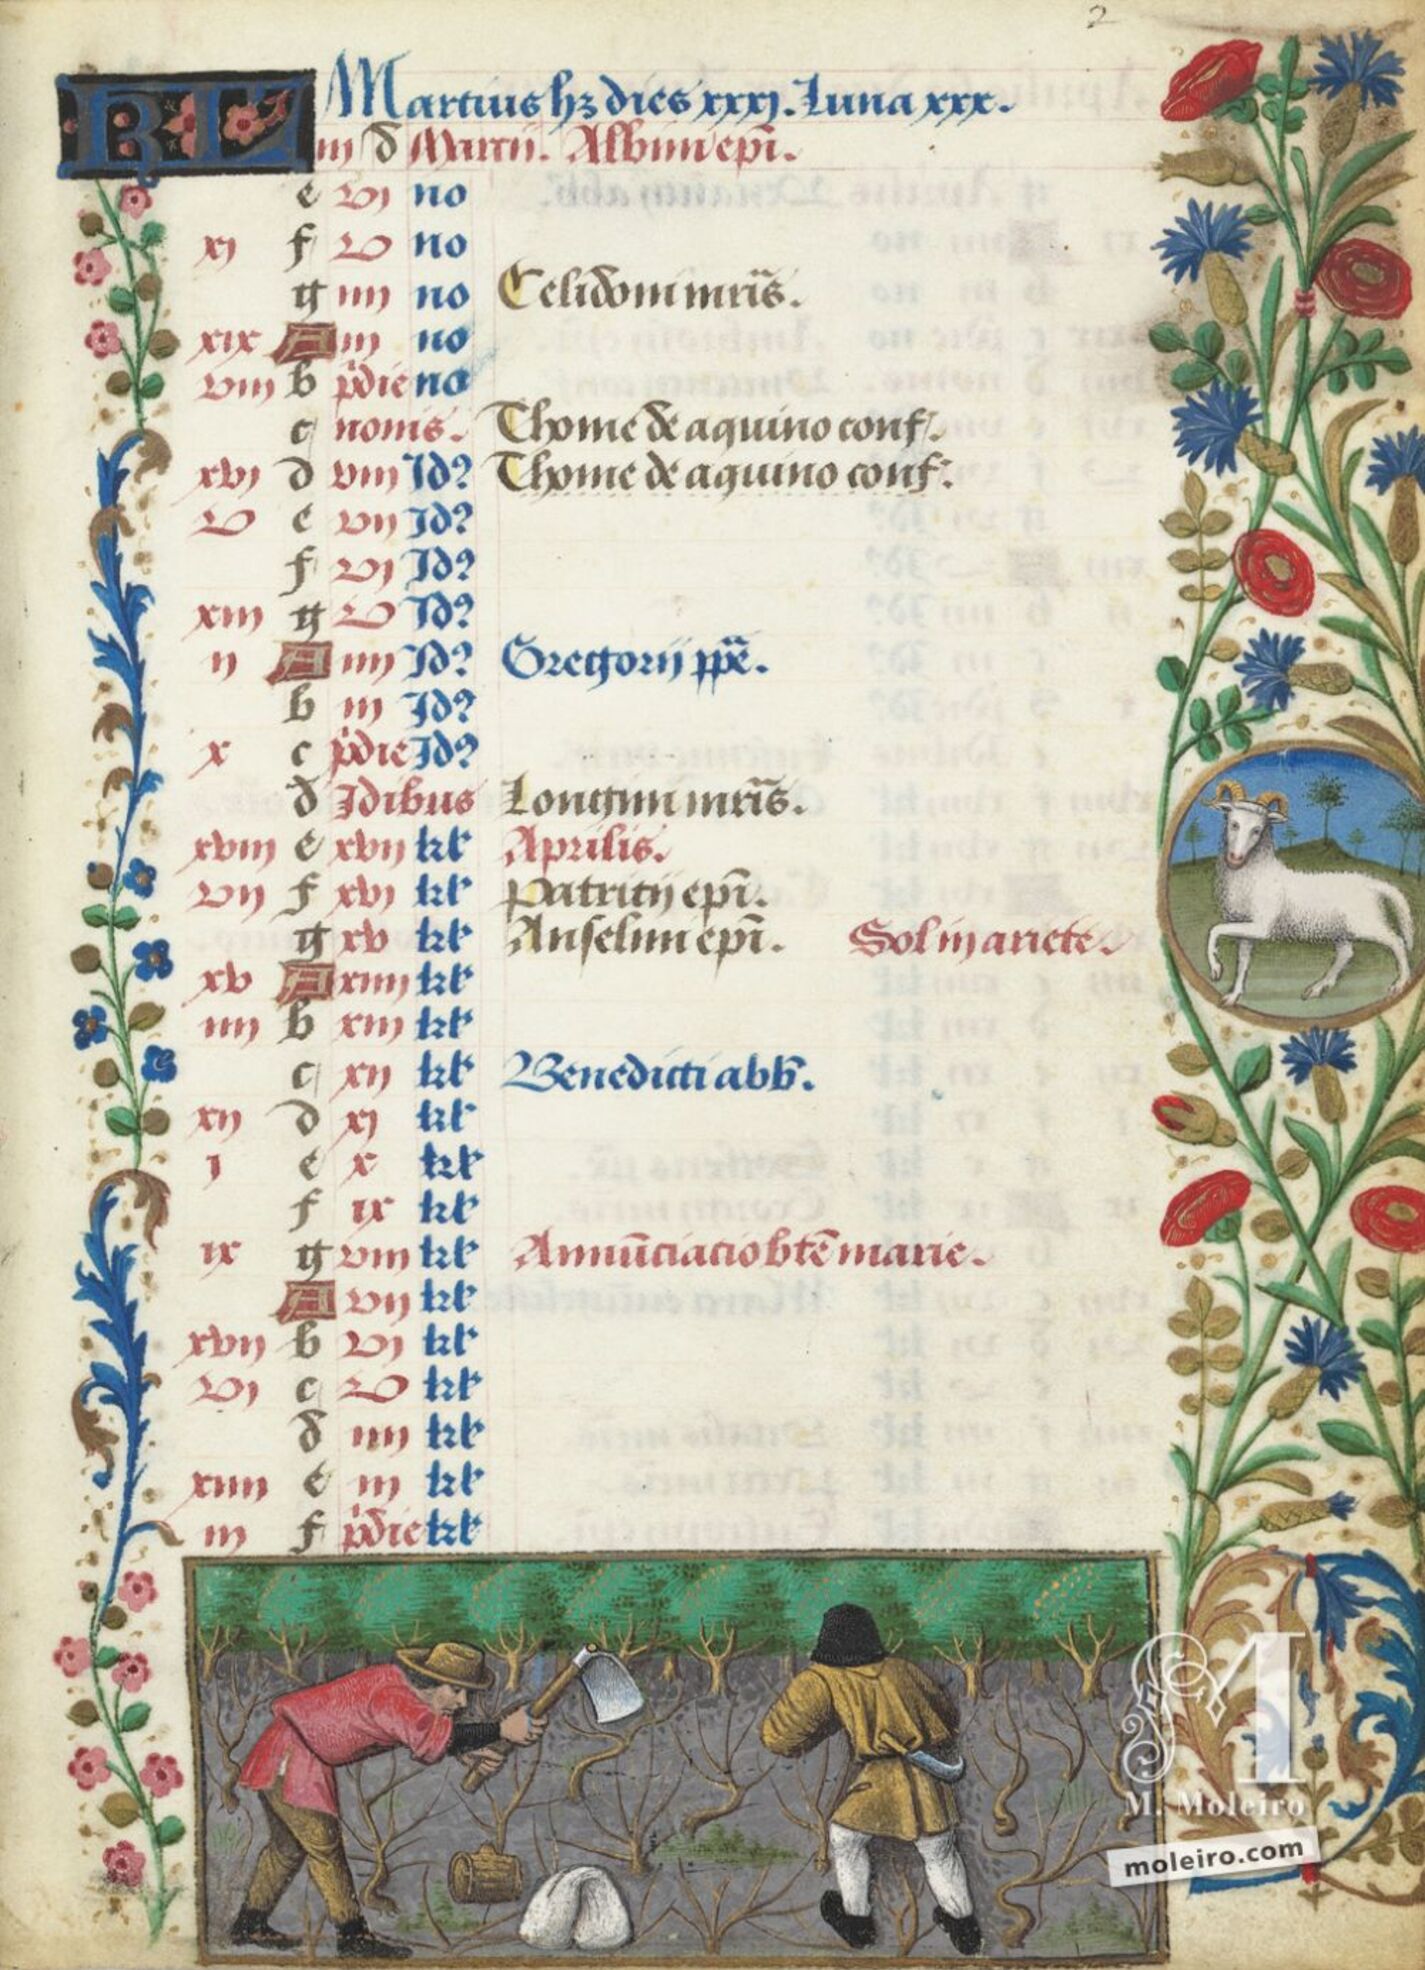 2
KL Martius hz dies xxxj. Luna xxx.
iij d Martii. Albini epi.
e vj no
xj f v no
g iiij no Celidoni mris.
xix A iij no
viij b pdie no
c nonis. Thome de aquino conf.
xvj d viij Id? Thome de aquino conf.
v e vij Id?
f vj Id?
xiij g v Id?
ij A iiij Id? Gregorij ppe.
b iij Id?
x c pdie Id?
d Idibus Longini mris.
xviij e xvij kl Aprilis.
vij f xvj kl Patritij epi.
g xv kl Anselmi epi. Sol in ariete.
xv A xiiij kl
iiij b xiij kl
c xij kl Benedicti abb.
xij d xj kl
j e x kl
f ix kl
ix g viij kl Annunciatio bte marie.
A vij kl
xvij b vj kl
vj c v kl
d iiij kl
xiiij e iij kl
iij f pdie kl
M
M. Moleiro
moleiro.com